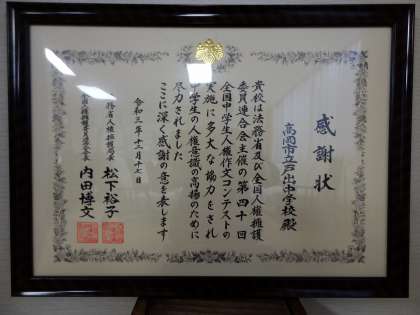 感謝状
高岡市立戸出中学校殿
貴校は法務省及び全国人権擁護
委員連合会主催の第四十回
全国中学生人権作文コンテストの
実施に多大な協力をされ
中学生の人権意識の高揚のために
尽力されました
ここに深く感謝の意を表します
令和三年十二月十七日
法務省人権擁護局長
松下裕子
全国人権擁護委員連合会長
内田博文